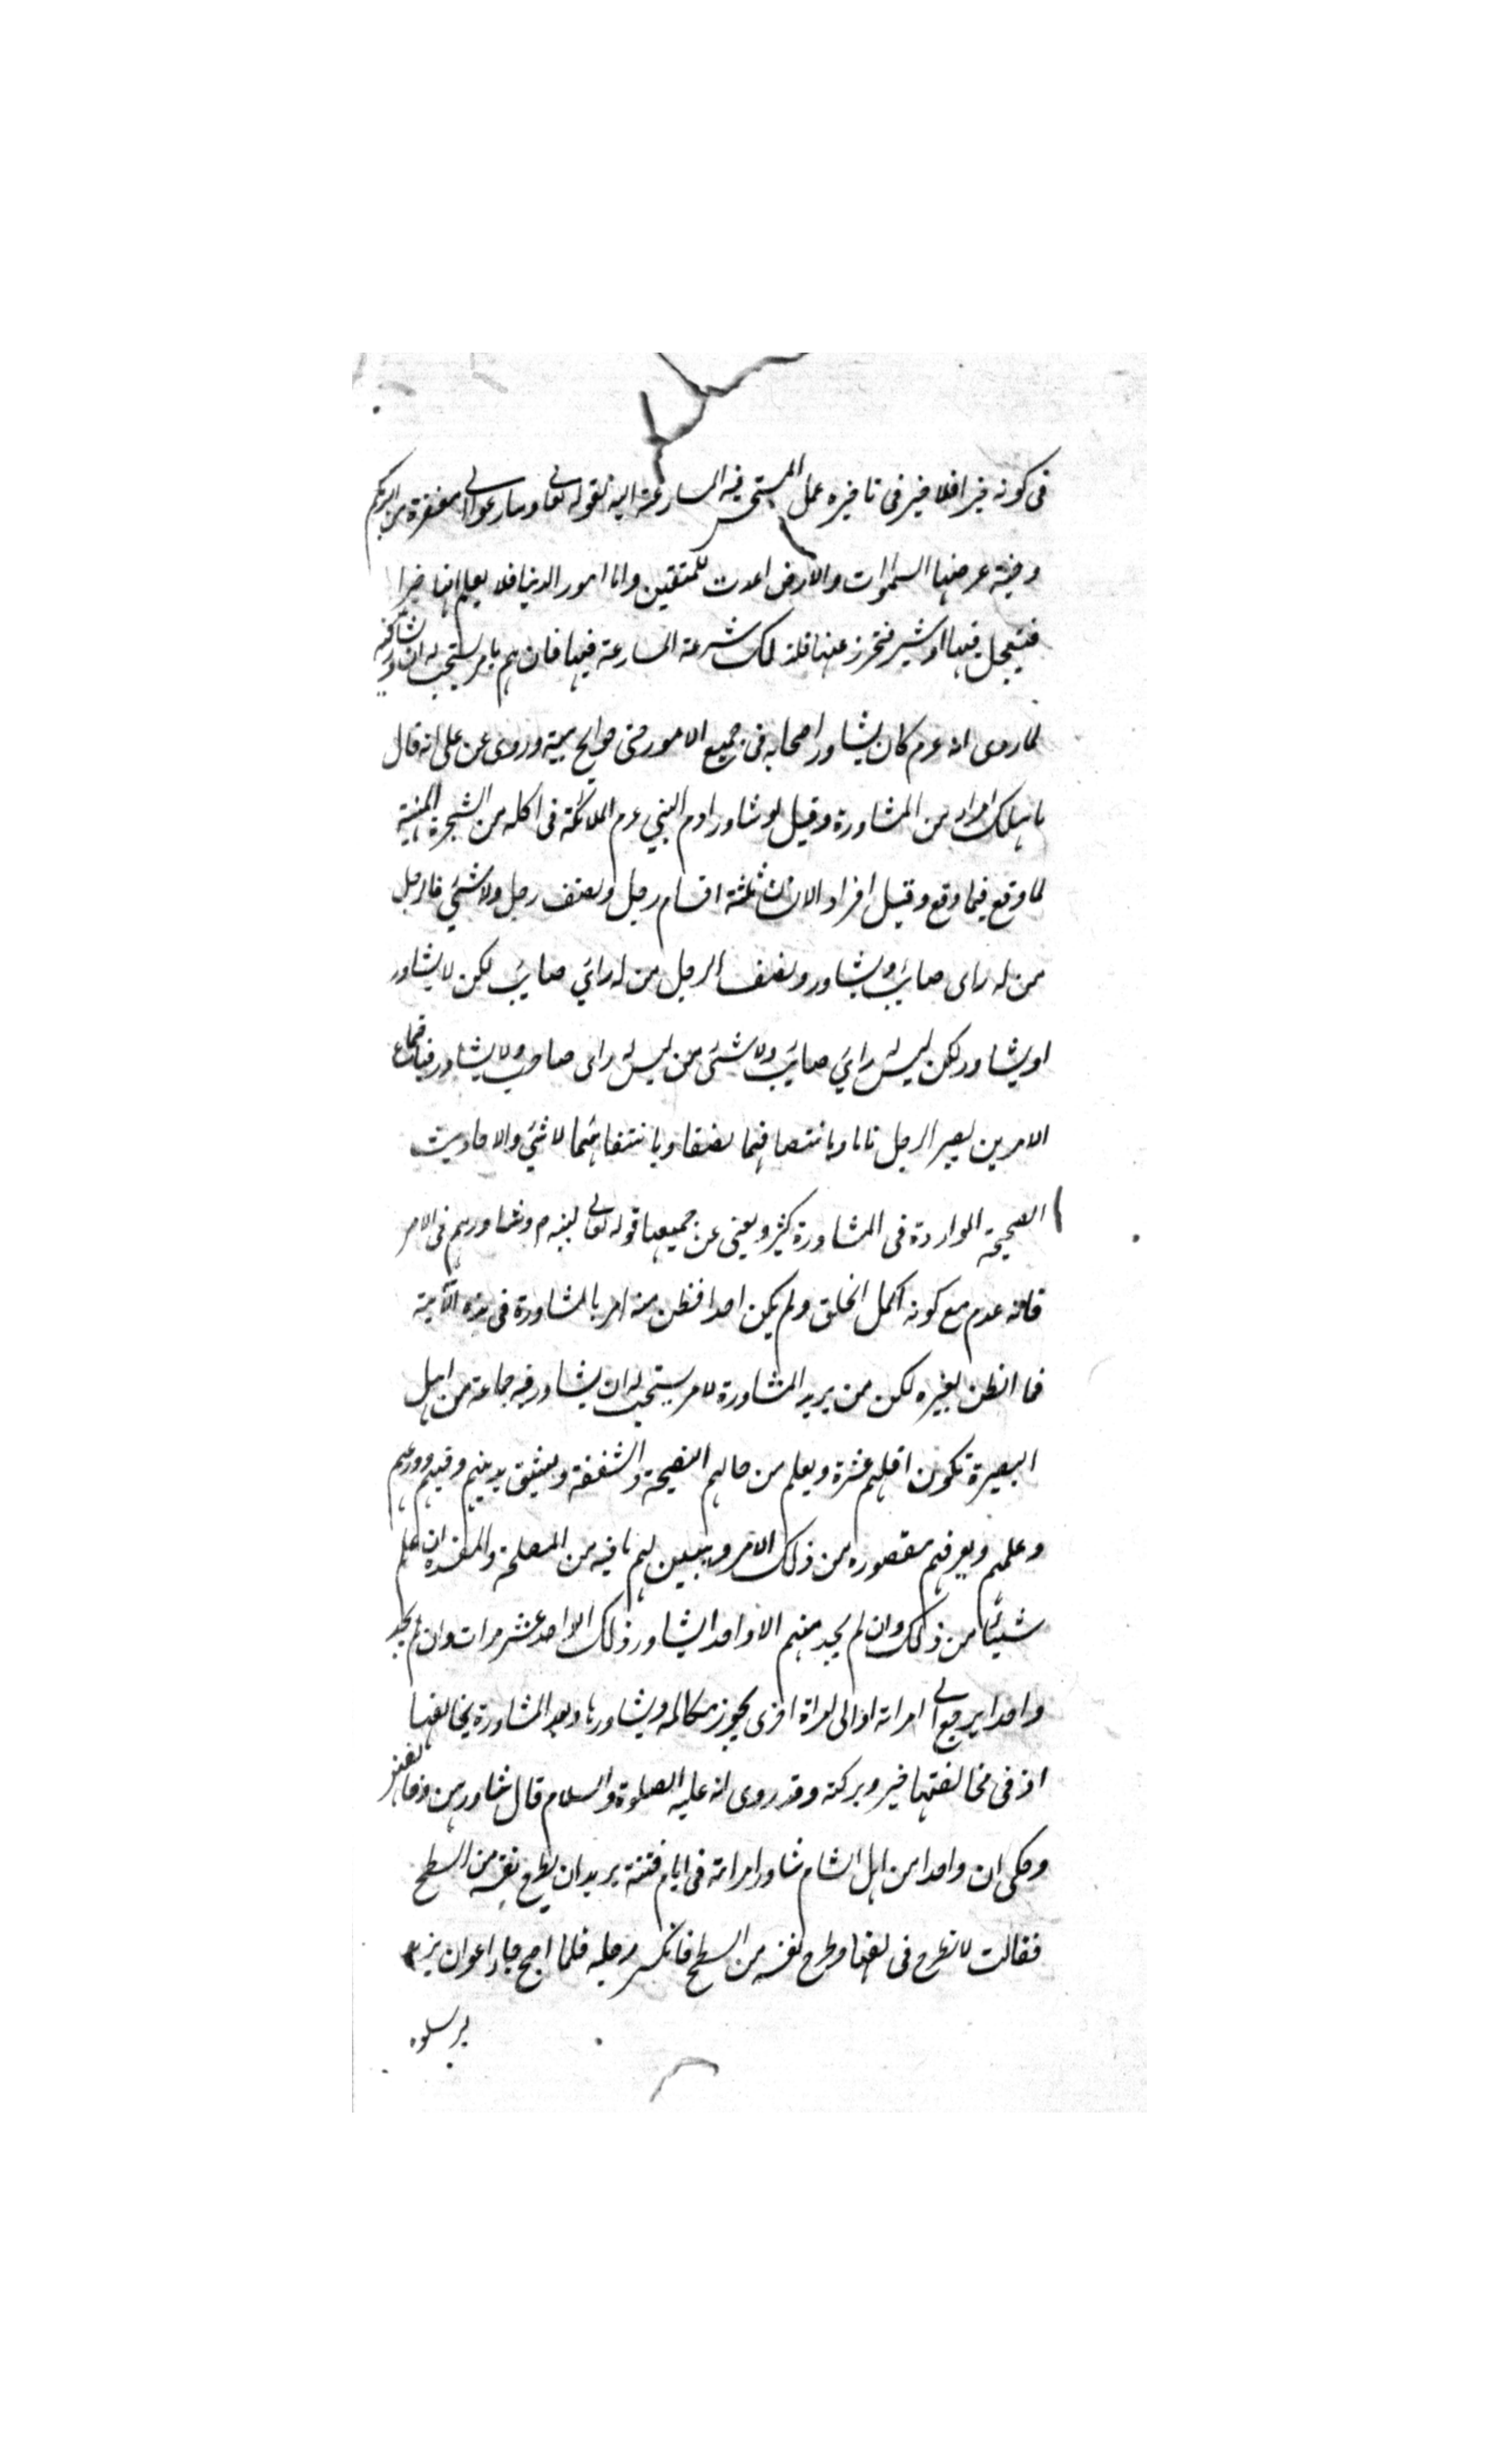 فى كونه خيرا فلا خير فى تاخيره عمل المستحب فيه المسارعة اليه لقوله تعالى وسارعوا الى مغفرة من ربكم
وجنة عرضها السموات والارض اعدت للمتقين واما امور الدنيا فلا يعلم انها خيرا
فيتعجل فيها او شر فتحرز عنها فلذلك شرعة المسارعة فيها فان هم بامر يستحب له ان يشاور
لما روى انه عم كان يشاور اصحابه فى جميع الامور حتى حوايج بيته وروى عن على انه قال
ما هلك امرء من المشاورة وقيل لو شاور ادم النبي عم الملائكة فى اكله من الشجرة المنهية
لما وقع فيما وقع وقيل افراد الانسان ثلثة اقسام رجل ونصف رجل ولا شئ فالرجل
من له راى صائب ويشاور ونصف الرجل من له رائ صائب لكن لا يشاور
او يشاور لكن ليس له رائ صائب ولا شئ من ليس له راى صائب ولا يشاور فباجتماع
الامرين يصير الرجل تاما وبانتصافهما نصفا وبانتفائهما لا شئ والاحاديث
الصحيحة الواردة فى المشاورة كثير ويغنى عن جميعها قوله تعالى لنبيه م وشاورهم فى الامر
فانه عدم مع كونه اكمل الخلق ولم يكن احد افطن منه امر بالمشاورة فى هذه الآية
فما الظن لغيره لكن من يريد المشاورة لامر يستحب له ان يشاور فيه جماعة من اهل
البصيرة تكون اقلهم عشرة ويعلم من حالهم النصيحة والشفقة ويثيق بدينهم وورعهم
وعلمهم ويعرفهم مقصوره من ذلك الامر ويبين لهم ما فيه من المصلحة والمفسدة ان علم
شيئا من ذلك وان لم يجد منهم الا واحدا يشاور ذلك الواحد عشر مرات وان لم يجد
واحدا يرجع الى امراته او الى امراة اخرى يجوز مكالمه ويشاورها وبعد المشاورة يخالفها
اذ فى مخالفتها خير وبركة وقد روى انه عليه الصلوة والسلام قال شاورهن وخالفهن
وحكى ان واحدا من اهل الشام شاور امراته فى ايام فتنة يريد ان يطرح نفسه من السطح
فقالت لا تطرح فى لفها وطرح نفسه من السطح فانكسر رجليه فلما اصبح جاء اعوان يزيد
ليرسلوه